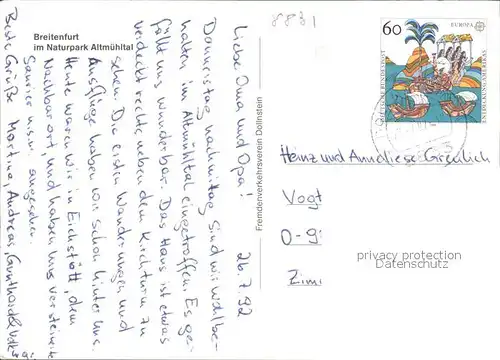 Breitenfurt
im Naturpark Altmühltal
Fremdenverkehrsverein Dollnstein
8831
60
EUROPA
DEUTSCHE BUNDESPOST
26.7.92
Liebe Oma und Opa!
Donnerstag nachmittag sind wir wohlbe-
halten im Altmühltal eingetroffen. Es ge-
fällt uns wunderbar. Das Haus ist etwas
versteckt rechts neben dem Kirchturm zu
sehen. Die ersten Wanderungen und
Ausflüge haben wir schon hinter uns.
Heute waren wir in Eichstätt, dem
Nachbarort und haben uns versteinerte
Saurier u.s.w. angesehen.
Beste Grüße Martina, Andreas,
Heinz und Anneliese Greulich
Vogt
O-9
Zim
privacy protection
Datenschutz